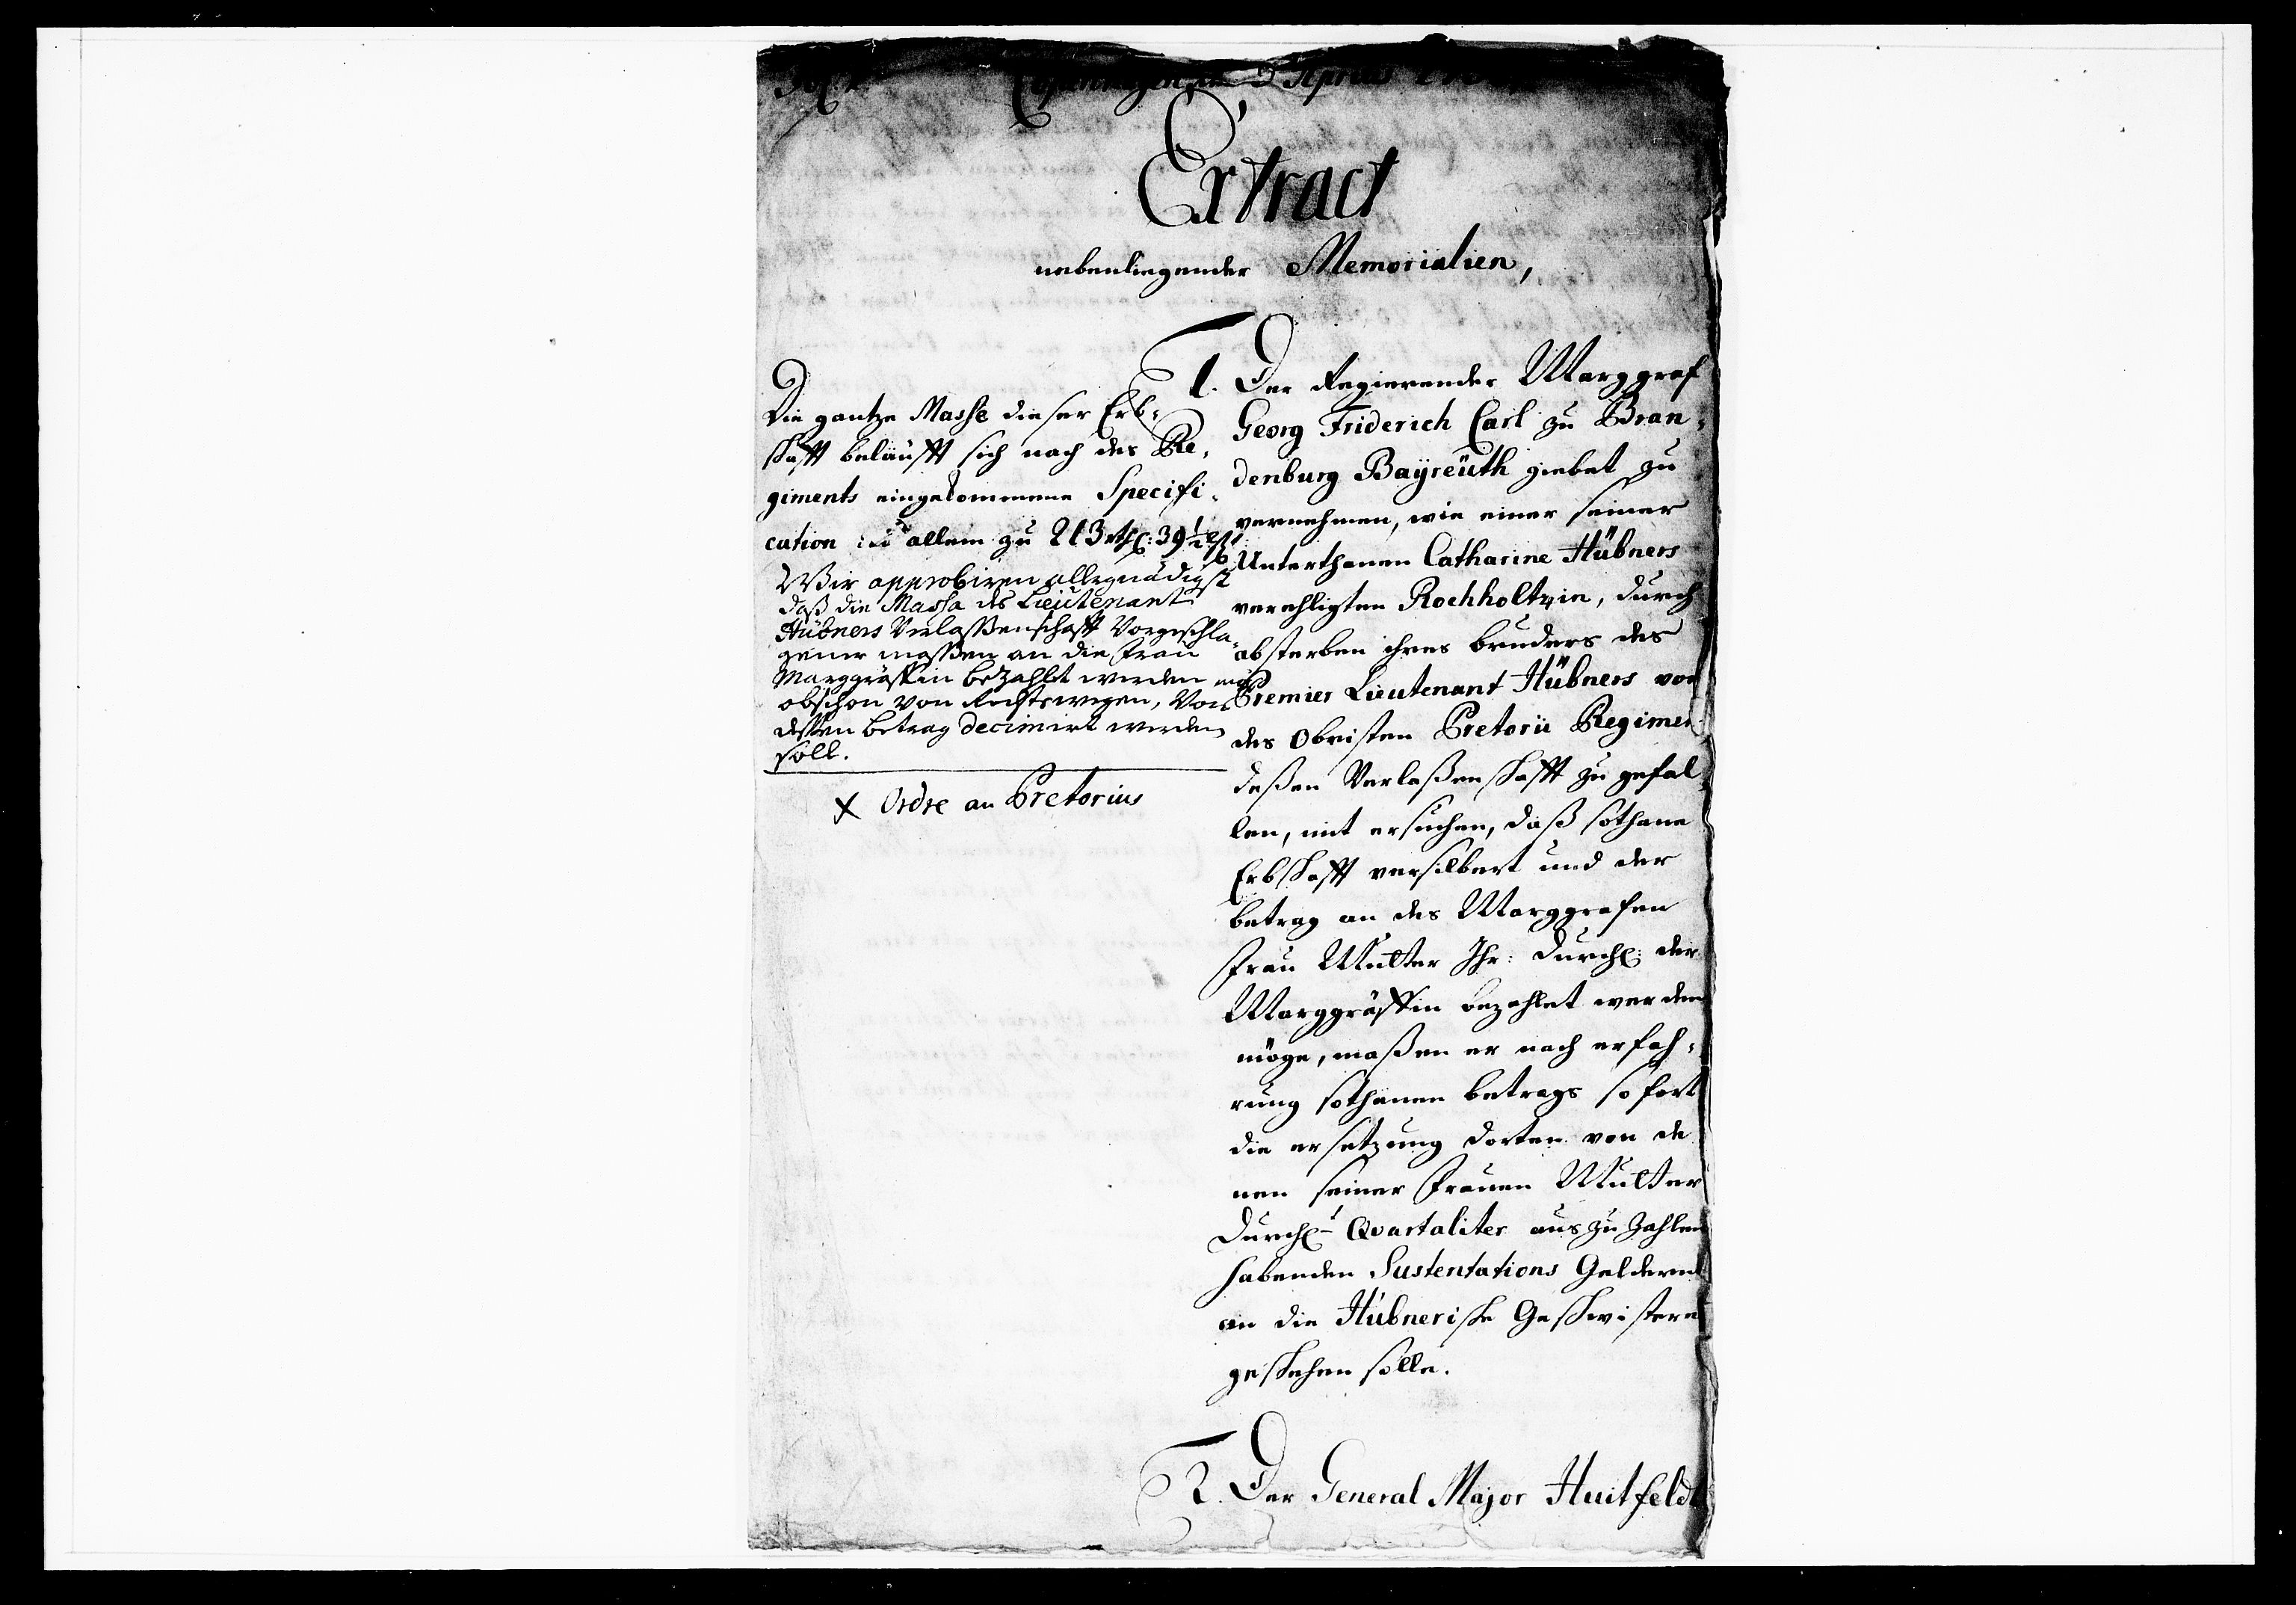 Copenhagen, d. Aprilis
Extract
nebenliegender Memorialien,
Die gantze Masse dieser Erb-
schafft beläufft sich nach des Re-
giments eingekommene Specifi-
cation in allem zu 213 rthl: 39½ ß
Wir approbiren allergnädigst
daß die Massa des Lieutenant
Hübners Verlassenschafft Vorgeschla-
gener massen an die Frau
Marggräffin bezahlet werden mag
obschon von Rechtswegen, Von
dessen betrag decimirt werden
soll.
X Ordre an Pretorius
1. Der Regierender Marggraf
Georg Friderich Carl zu Bran-
denburg Bayreüth giebet zu
vernehmen, wie einer seiner
Unterthanen Catharine Hübners
verehligten Rochholtzin, durch
absterben ihres bruders des
Premier Lieutenant Hübners von
des Obristen Pretorii Regimen
deßen Verlaßenschafft zu gefal-
len, mit ersuchen, daß sothane
Erbschafft versilbert und der
betrag an des Marggrafen
Frau Mutter Ihr: Durchl: der
Marggräffin bezahlet werden
möge, maßen er nach erfah-
rung sothanen betrags sofort
die ersetzung dorten von de
nen seiner Frauen Mutter
Durchl: Qvartaliter auszuzahlen
habenden Sustentations Geldern
an die Hübnerische Geschwistere
geschehen solle.
2. Der General Major Huitfeldt